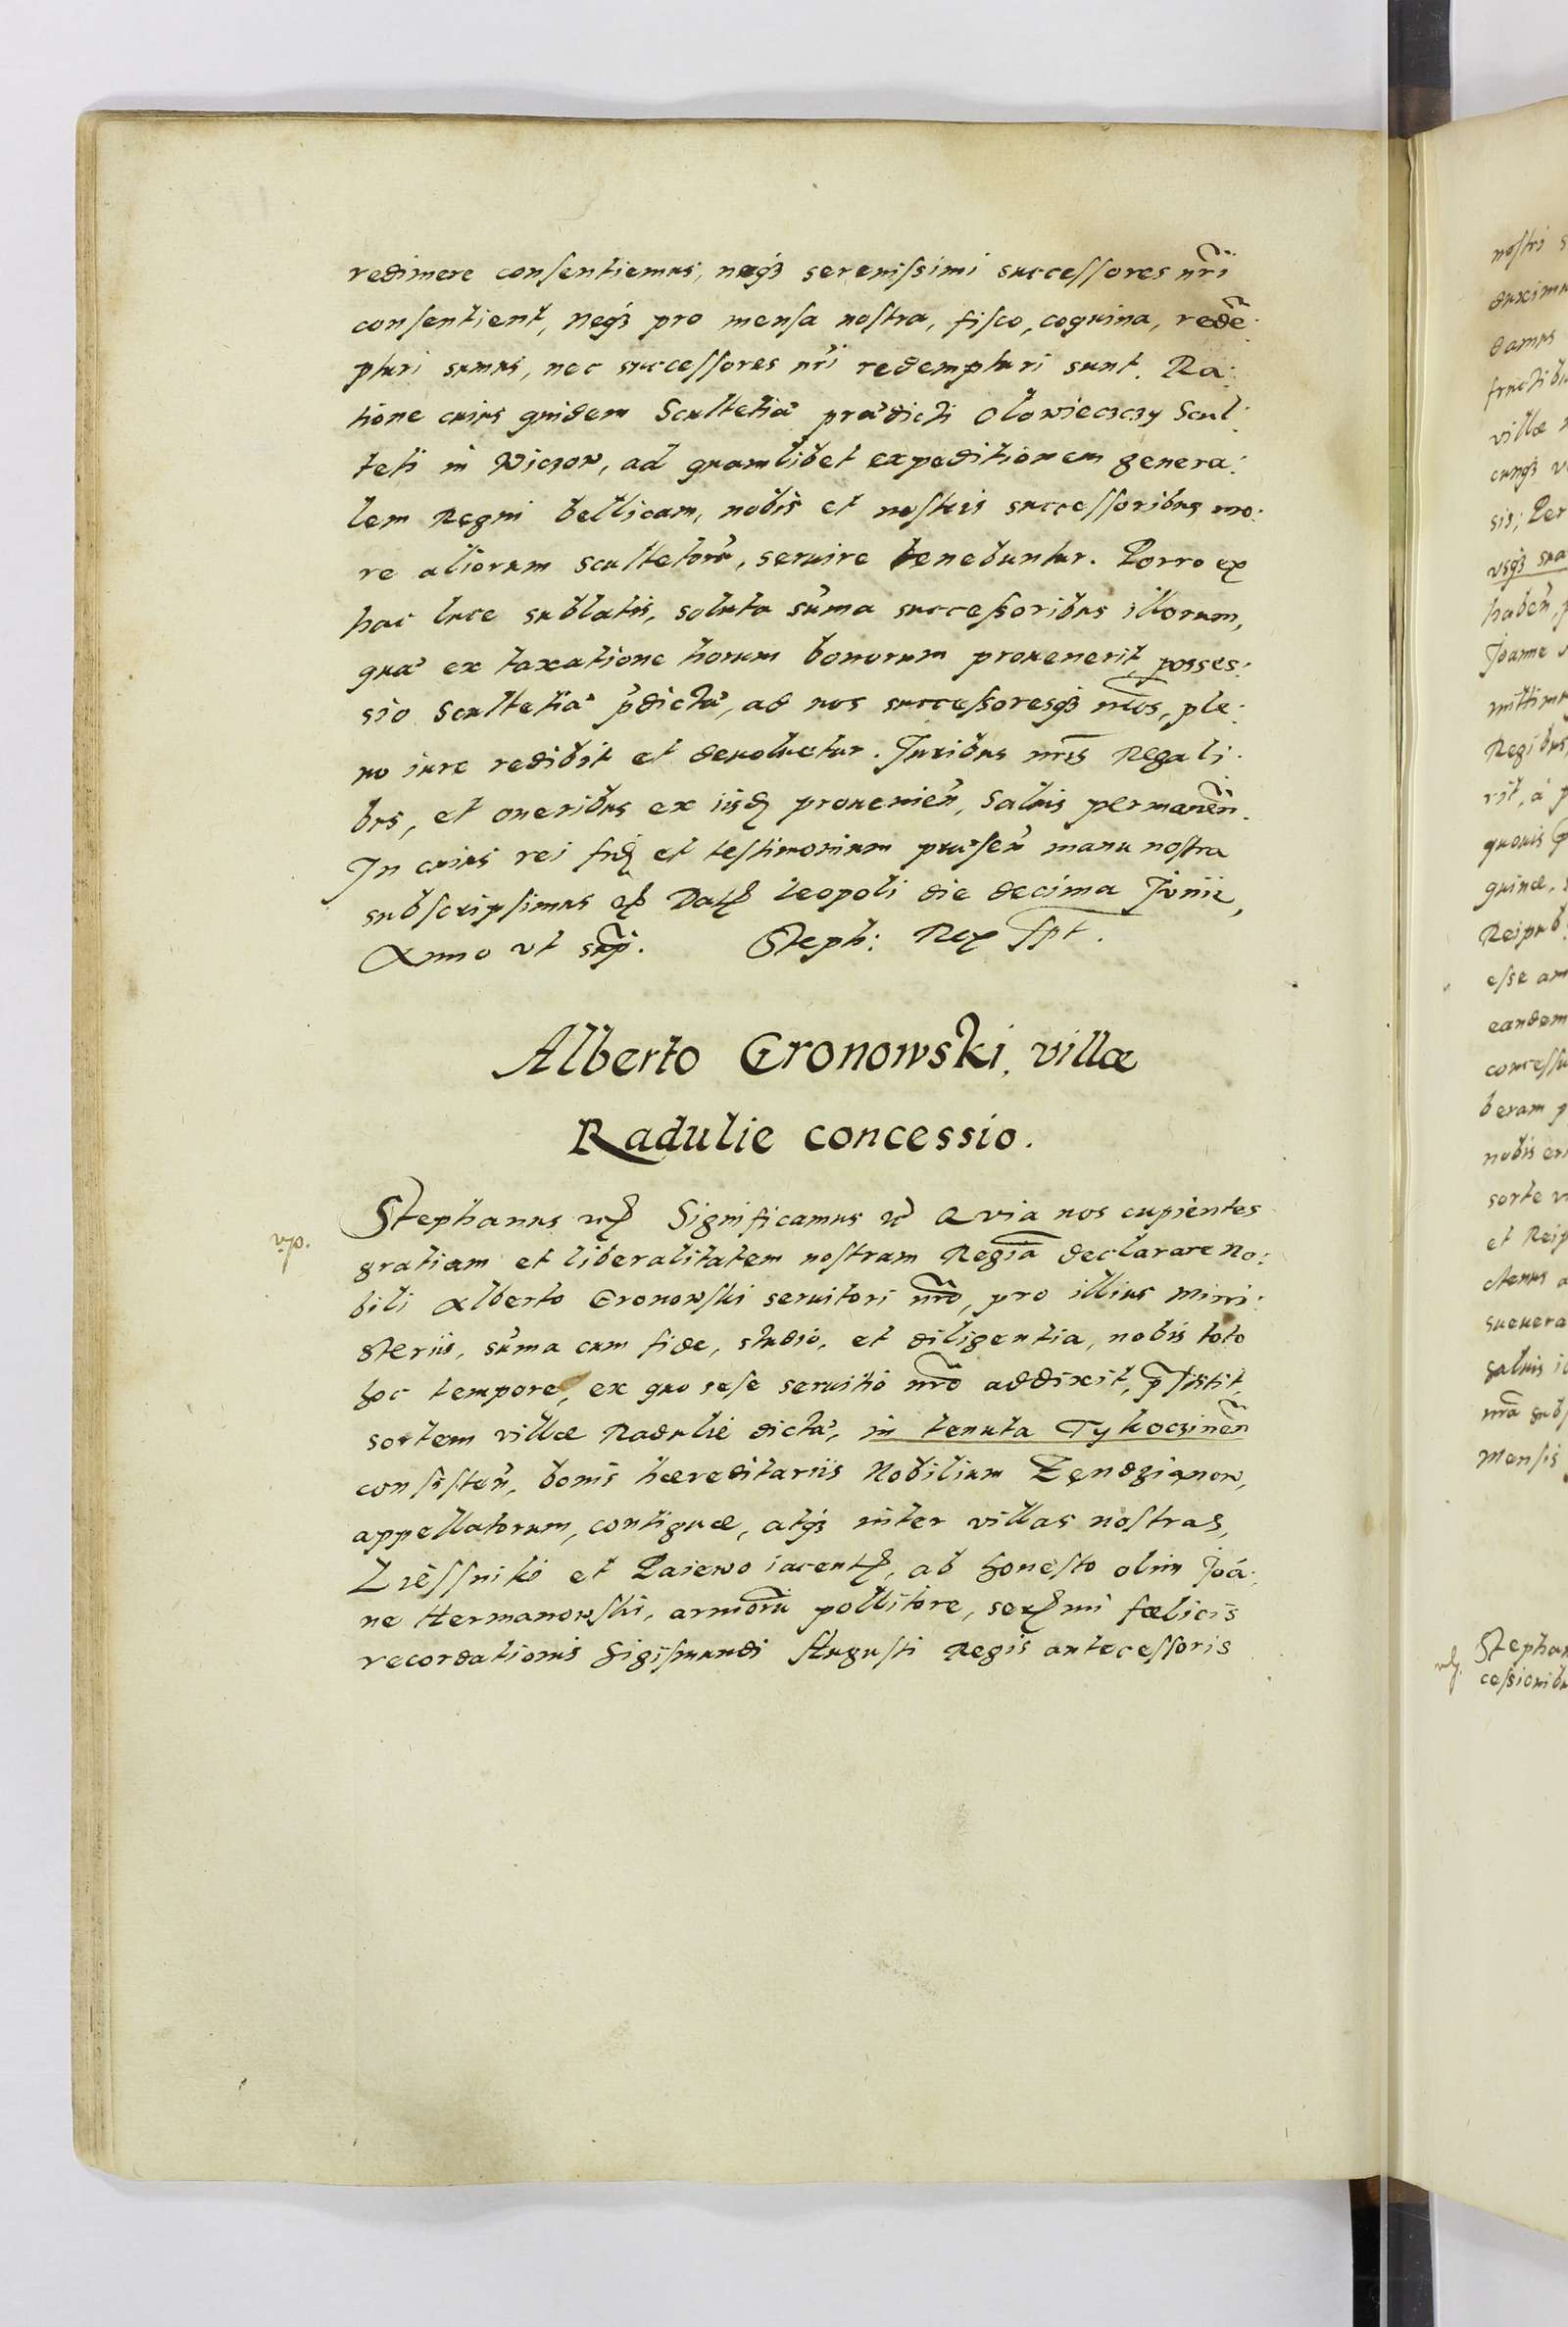 redimere consentiemus, neq₃ serenissimi successores nr̃i
consentient, Neq₃ pro mensa nostra, fisco, coquina, redẽ:
pturi sumus, nec successores nr̃i redempturi sunt. Ra:
tione cuius quidem Scultetiæ prædicti Olowieczczy Scul:
teti in Wiczow, ad quamlibet expeditionem genera:
lem Regni bellicam, nobis et nostris successoribus mo:
re aliorum scultetorũ, seruire tenebuntur. Porro ex
hac luce sublatis, soluta sũma successoribus illorum,
quæ ex taxatione horum bonorum prouenerit, posses:
sio Scultetiæ p̃dictæ, ad nos successoresq₃ nr̃os, ple:
no iure redibit et deuoluetur. Iuribus nr̃is Regali:
bus, et oneribus ex iisdꝫ prouenieñ, Saluis permaneñ.
In cuius rei fidꝫ et testimonium præseñ manu nostra
subscripsimus ꝛc̃ Datꝫ Leopoli die decima Junii,
Anno vt sup̃. Steph: Rex sp̃t.
Alberto Gronowski, villæ
Radulie concessio.
Stephanus ꝛc̃ Significamus ꝛc̃ Quia nos cupientes
gratiam et liberalitatem nostram Regiã declarare No:
bili Alberto Gronowski seruitori nr̃o, pro illius mini:
steriis, sũma cum fide, studio, et diligentia, nobis toto
hoc tempore, ex quo sese seruitio nr̃o addixit, p̃stitit,
sortem villæ Radulie dictæ, in tenuta Tykoczineñ
consisteñ, bonis hæreditariis Nobilium Zendzianow,
appellatorum, contiguæ, atq₃ inter villas nostras,
Liessniki et Paiewo iacentꝫ, ab honesto olim Joã:
ne Hermanowski, armorũ pollitore, serꝫmi fœlicis
recordationis Sigismundi Augusti Regis antecessoris
nostri
damus
villæ
sis; Per
vsq₃ sua
habeñ,
Regibus
rit, à
quouis
esse
eandem
beram
nobis
sorte
et Reip
saluis
Mensis
Stephan
cessionibu